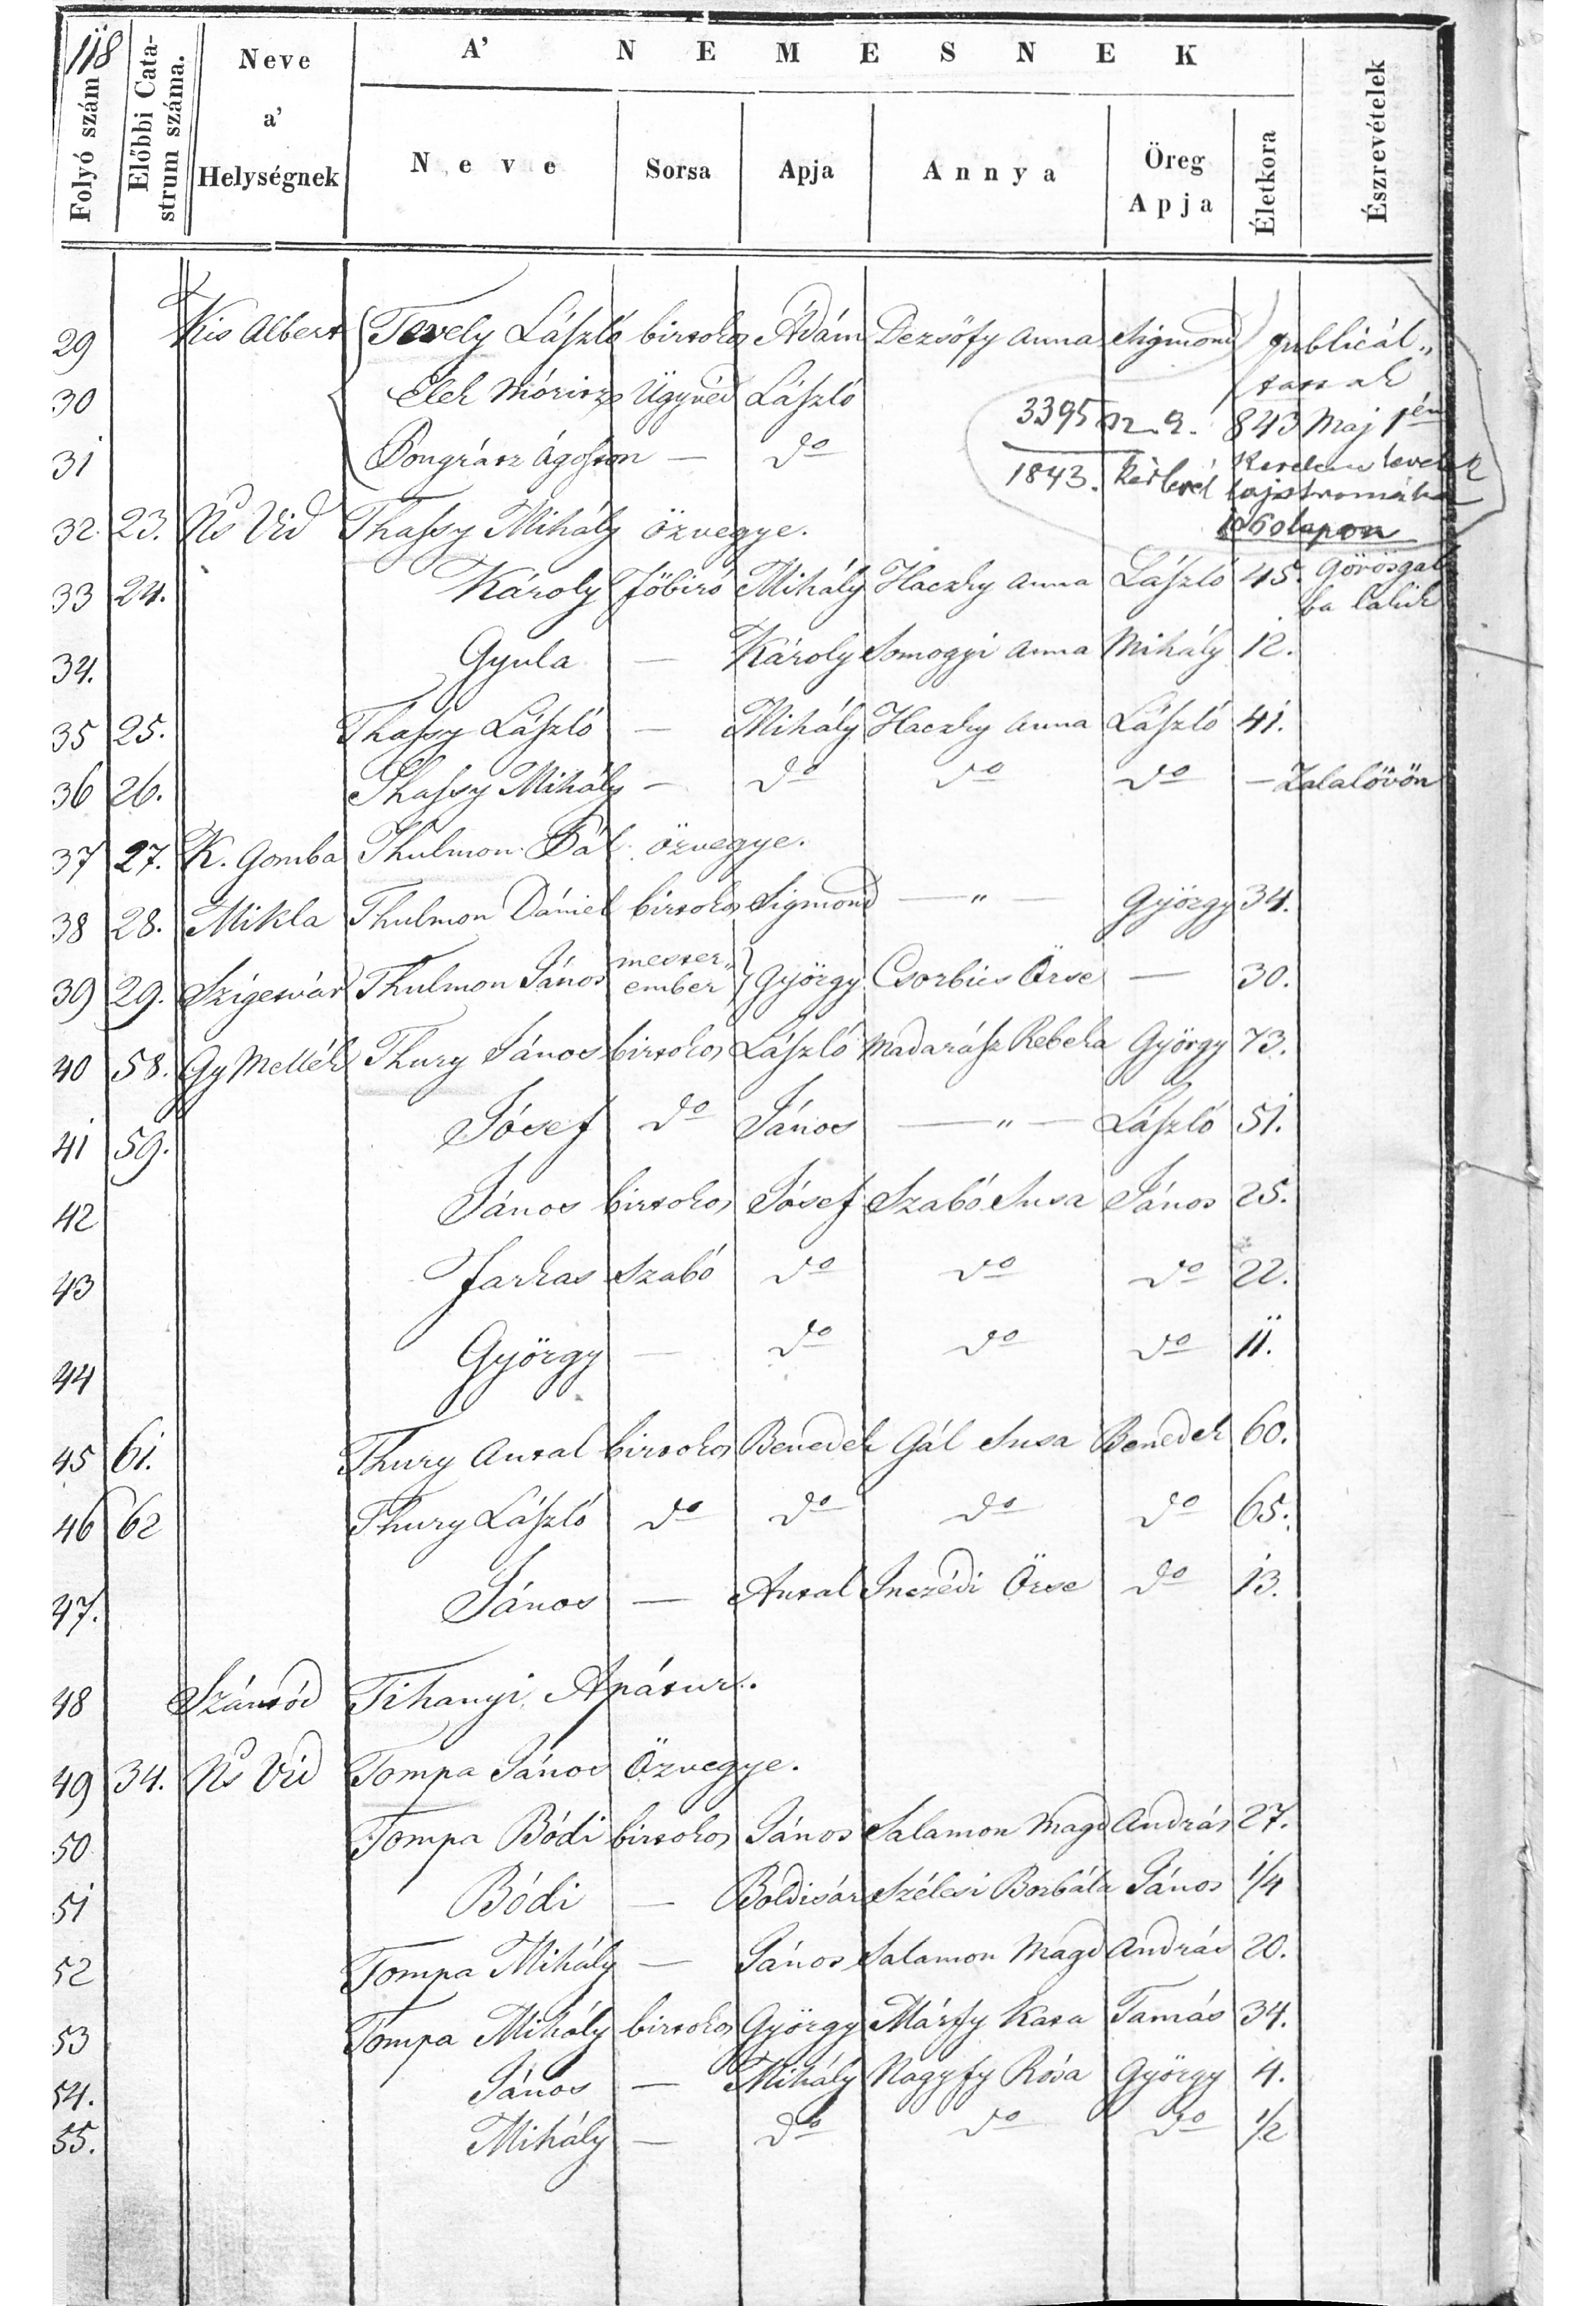 118
A' NEMESNEK
Folyó szám
Előbbi Catastrum száma.
Neve a' Helységnek
Neve
Sorsa
Apja
Annya
Öreg Apja
Életkora
Észrevételek
29 Kis Albert Tevely László birtokos Ádám Dezsőfy Anna Sigmond publicál„
30 Elek Móricz Ügyvéd László tassak
3395 843 Maj 1én
31 Pongrátz Ágoston — do
1843. körlevél Kerelem levelek lajstromába
32. 23. Ns Vid Thassy Mihály özvegye. 106 lapon
33 24. Károly főbiró Mihály Haczky Anna László 45. Görösgal
ba lakik
34. Gyula — Károly Somogyi Anna Mihály 12.
35 25. Thassy László — Mihály Haczky Anna László 41.
36 26. Thassy Mihály — do do do — Zalalövön
37 27. K. Gomba Thulmon Pál özvegye.
38 28. Mikla Thulmon Dániel birtokos Sigmond — „ — György 34.
39 29. Szigetvár Thulmon János mester„ ember } György Csorbics Örse — 30.
40 58. Gy Mellék Thury János birtokos László Madarász Rebeka György 73.
41 59. Jósef do János — „ — László 51.
42 János birtokos Jósef Szabó Susa János 25.
43 Farkas Szabó do do do 22.
44 György — do do do 11.
45 61. Thury Antal birtokos Benedek Gál Susa Benedek 60.
46 62 Thury László do do do do 65.
47. János — Antal Inczédi Örse do 13.
48 Szántód Tihanyi Apátur.
49 34. Ns Vid Tompa János Özvegye.
50 Tompa Bódi birtokos János Salamon Magd András 27.
51 Bódi — Boldisár Szélesi Borbála János 1/4
52 Tompa Mihály — János Salamon Magd András 20.
53 Tompa Mihály birtokos György Márfy Kata Tamás 34.
54. János — Mihály Nagyfy Rósa György 4.
55. Mihály — do do do 1/2